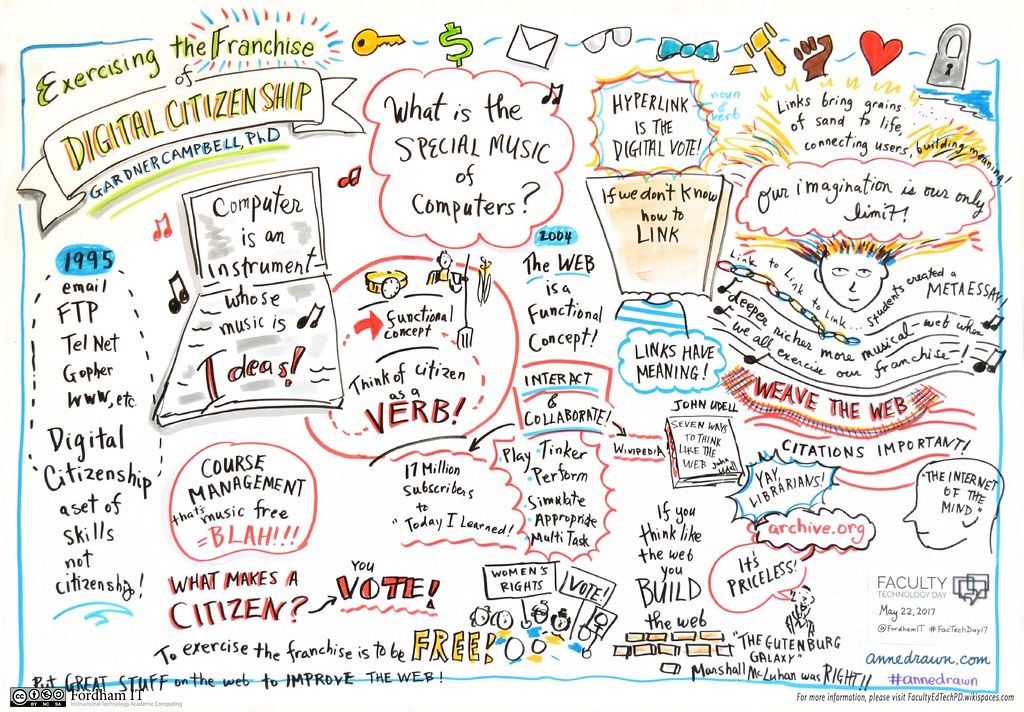 Exercising the Franchise
of
DIGITAL CITIZENSHIP
GARDNER CAMPBELL, PhD
1995
email
FTP
Tel Net
Gopher
WWW, etc.
Digital
Citizenship
a set of
skills
not
citizenship!
Computer
is an
instrument
whose
music is
Ideas!
What is the
SPECIAL MUSIC
of
Computers?
functional
concept
Think of citizen
as a
VERB!
2004
The WEB
is a
Functional
Concept!
INTERACT
&
COLLABORATE!
Play
Tinker
Perform
Simulate
Appropriate
Multi Task
17 Million
Subscribers
to
"Today I Learned!
COURSE
MANAGEMENT
that's music free
= BLAH!!!
WHAT MAKES A
CITIZEN?
YOU
VOTE!
WOMEN'S
RIGHTS
VOTE!
To exercise the franchise is to be FREE!
Put GREAT STUFF on the web to IMPROVE THE WEB!
HYPERLINK
IS THE
DIGITAL VOTE!
noun
&
verb
If we don't know
how to
LINK
LINKS HAVE
MEANING!
Links bring grains
of sand to life,
connecting users, building meaning!
Our imagination is our only
limit!
Link to Link to Link to Link... students created a
METAESSAY!
deeper richer more musical-web when
we all exercise our franchise-!
WEAVE THE WEB
CITATIONS IMPORTANT!
JOHN UDELL
SEVEN WAYS
TO THINK
LIKE THE
WEB
WIKIPEDIA
YAY,
LIBRARIANS!
archive.org
IT'S
PRICELESS!
"THE INTERNET
OF THE
MIND"
If you
think like
the web
you
BUILD
the web
"THE GUTENBURG
GALAXY"
Marshall McLuhan was RIGHT!!
FACULTY
TECHNOLOGY DAY
May 22, 2017
@FordhamIT #FacTechDay17
annedrawn.com
#annedrawn
cc BY NC SA
Fordham IT
Instructional Technology Academic Computing
For more information, please visit FacultyEdTechPD.wikispaces.com